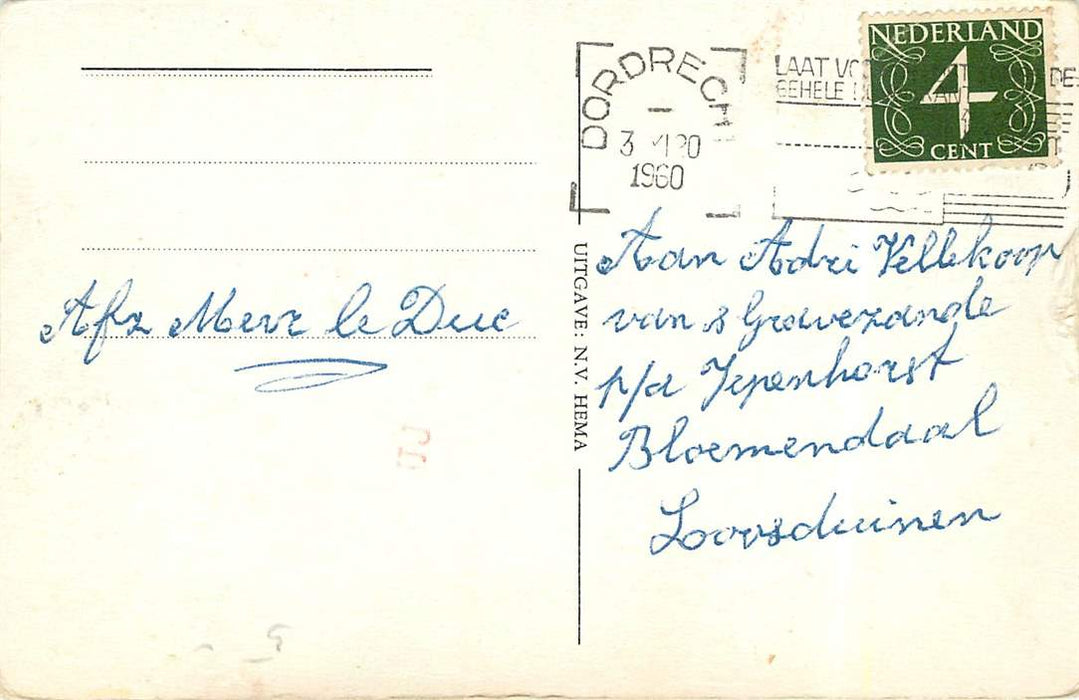 DORDRECHT
3 XI 20
1960
LAAT VO
GEHELE
DE
NEDERLAND
4
CENT
Afz Mevr le Duc
UITGAVE: N.V. HEMA
Aan Adri Vellekoop
van s Gravezande
p/a Iepenhorst
Bloemendaal
Loosduinen